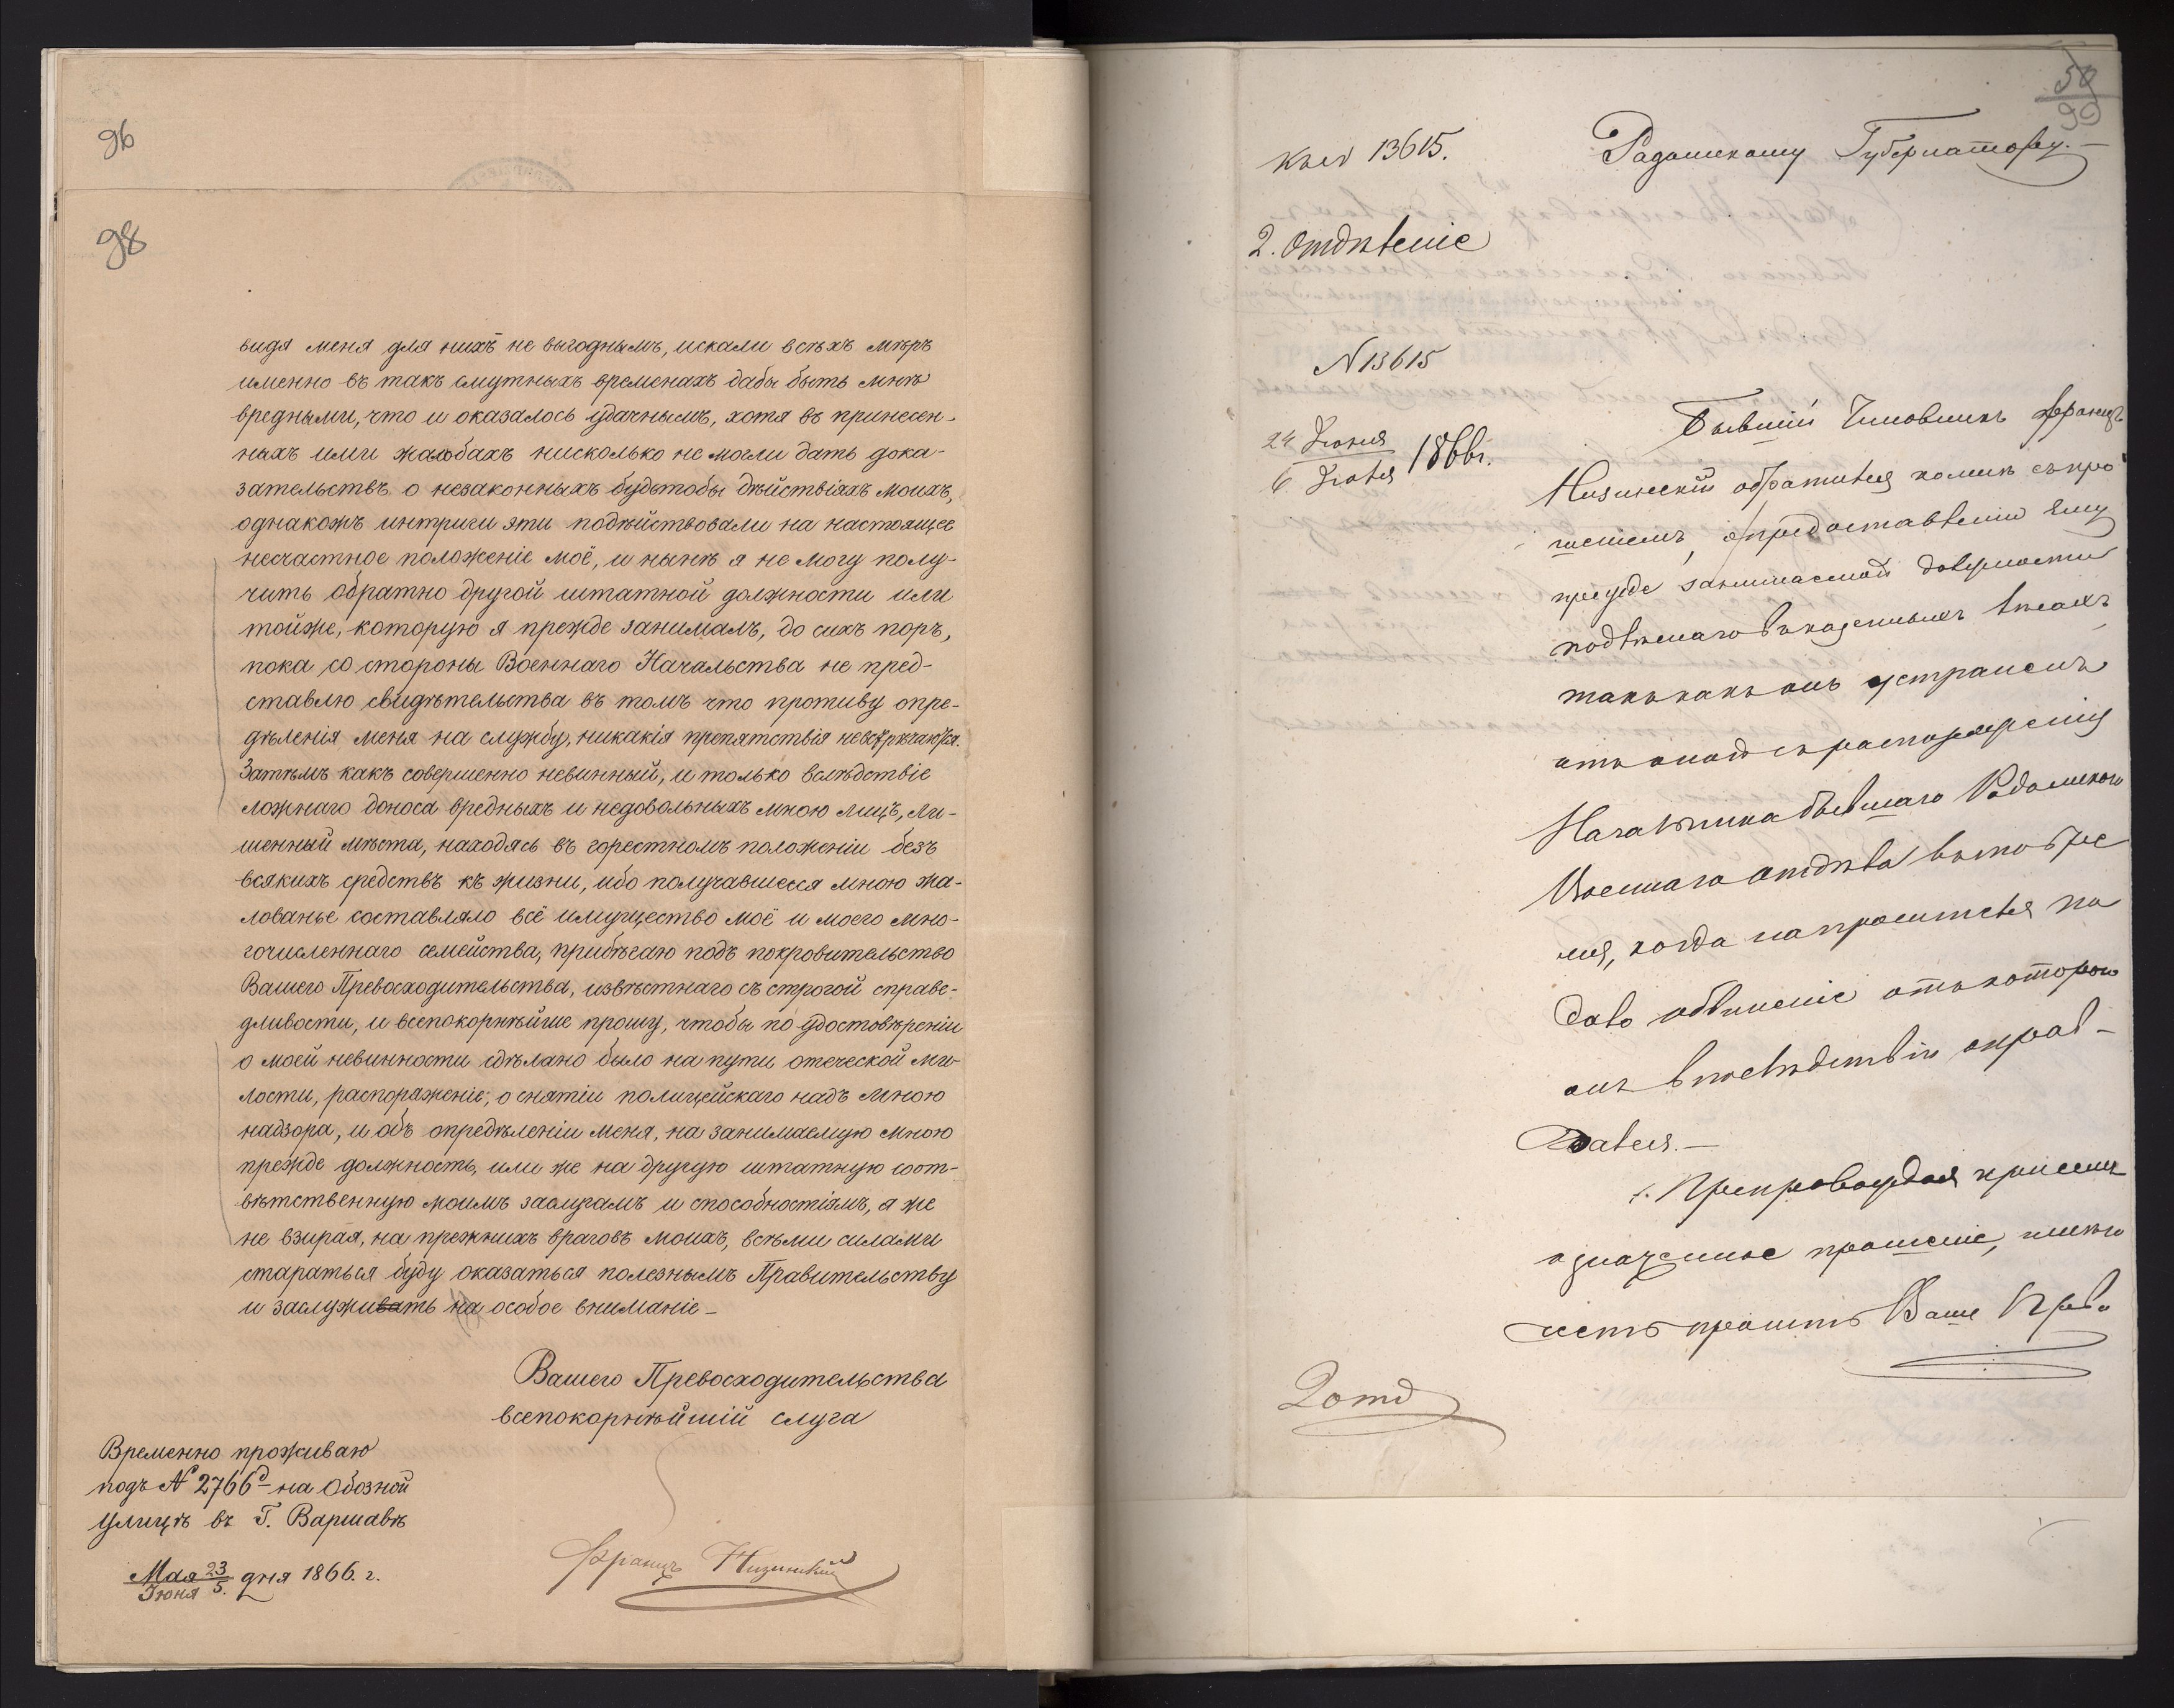 96
98
видя меня для нихъ не выгоднымъ, искали всѣхъ мѣръ
именно въ такъ смутныхъ временахъ дабы быть мнѣ
вредными, что и оказалось удачнымъ, хотя въ принесен-
ныхъ ими жалобахъ нисколько не могли дать дока-
зательствъ о незаконныхъ будьтобы дѣйствіяхъ моихъ,
однакожъ интриги эти подѣйствовали на настоящее
несчастное положеніе моё, и нынѣ я не могу полу-
чить обратно другой штатной должности или
тойже, которую я прежде занималъ, до сихъ поръ,
пока со стороны Военнаго Начальства не пред-
ставлю свидѣтельства въ томъ что противу опре-
дѣленія меня на службу, никакія препятствія невстрѣчаются.
Затѣмъ какъ совершенно невинный, и только вслѣдствіе
ложнаго доноса вредныхъ и недовольныхъ мною лицъ, ли-
шенный мѣста, находясь въ горестномъ положеніи безъ
всякихъ средствъ къ жизни, ибо получавшееся мною жа-
лованье составляло всё имущество моё и моего мно-
гочисленнаго семейства, прибѣгаю подъ покровительство
Вашего Превосходительства, извѣстнаго съ строгой справе-
дливости, и всепокорнѣйше прошу, чтобы по удостовѣреніи
о моей невинности сдѣлано было на пути отеческой ми-
лости, распоряженіе, о снятіи полицейскаго надъ мною
надзора, и объ опредѣленіи меня, на занимаемую мною
прежде должность, или же на другую штатную соот-
вѣтственную моимъ заслугамъ и способностіямъ, я же
не взирая, на прежнихъ враговъ моихъ, всѣми силами
стараться буду оказаться полезнымъ Правительству
и заслуживать на особое вниманіе —
Вашего Превосходительства
всепокорнѣйшій слуга
Временно проживаю
подъ № 2766д на Обозной
улицѣ въ Г. Варшавѣ
Мая 23
Іюня 5. дня 1866. г.
Францъ Низинскій
50
99
13615.
Радомскому Губернатору. —
2. Отдѣленіе
N 13615
24 Іюня
6 Іюля 1866 г.
Бывшій Чиновникъ Францъ
Низинскій обратился ко мнѣ съ про
шеніемъ, о предоставленіи ему
прежде занимаемой должности
подлѣснаго въ казенныхъ лѣсахъ
такъ какъ онъ устраненъ
отъ оной съ распоряженія
Начальника бывшаго Радомскаго
Военнаго отдѣла въ то вре
мя, когда на просителя па
дало обвиненіе отъ котораго
онъ впослѣдствіи оправ-
дался. —
Препровождая при семъ
означенное прошеніе, имѣю
честь просить Ваше Прево
2 отд